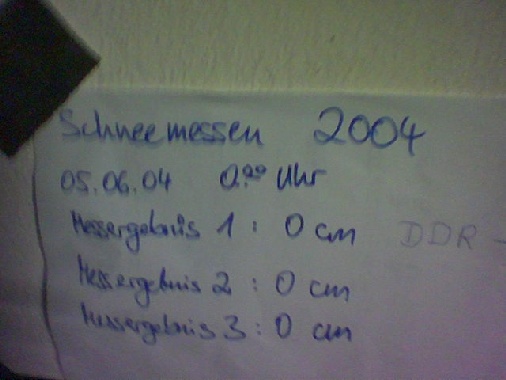 Schneemessen 2004
05.06.04 0.00 Uhr
Messergebnis 1 : 0 cm DDR -
Messergebnis 2 : 0 cm
Messergebnis 3 : 0 cm